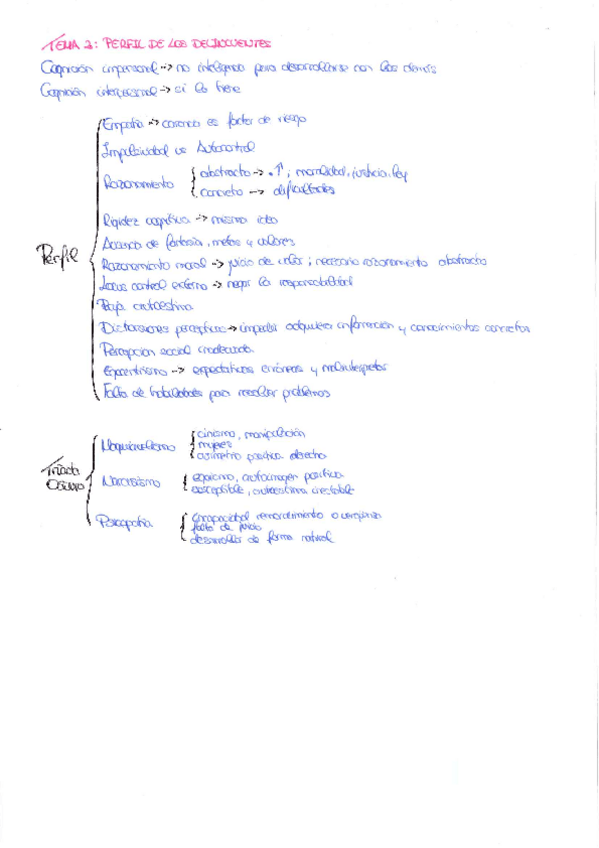 TEMA 2: PERFIL DE LOS DELINCUENTES
Cognición impersonal -> no inteligencia para desarrollarse con los demás
Cognición interpersonal -> si la tiene
Perfil
Empatía -> carencia es factor de riesgo
Impulsividad vs Autocontrol
Razonamiento
abstracto -> ↑; moralidad, justicia, ley
concreto -> dificultades
Rigidez cognitiva -> misma idea
Ausencia de fantasía, metas y valores
Razonamiento moral -> juicio de valor; necesario razonamiento abstracto
Locus control externo -> negar la responsabilidad
Baja autoestima
Distorsiones perceptivas -> impedir adquirir información y conocimientos correctos
Percepción social inadecuada
Egocentrismo -> expectativas erróneas y malinterpretar
Falta de habilidades para resolver problemas
Triada Oscura
Maquiavelismo
cinismo, manipulación
mujeres
asimetría positiva derecho
Narcisismo
egoísmo, autoimagen positiva
susceptible, autoestima inestable
Psicopatía
incapacidad remordimiento o vergüenza
falta de juicio
desarrollar de forma natural